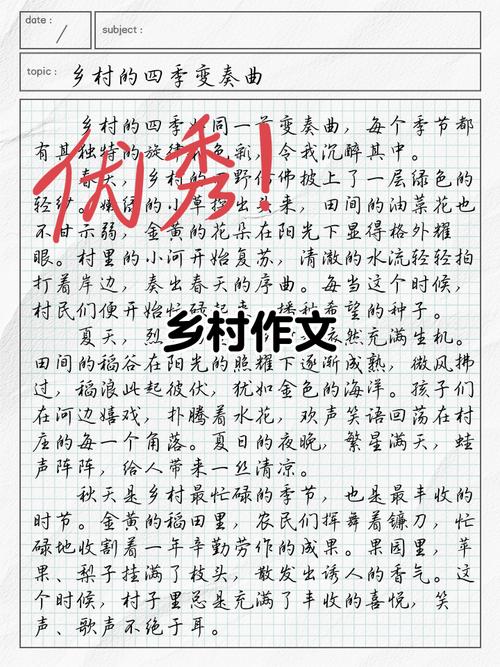 date :
/
subject :
topic : 乡村的四季变奏曲
乡村的四季如同一首变奏曲，每个季节都
有其独特的旋律和色彩，令我沉醉其中。
春天，乡村的田野仿佛披上了一层绿色的
轻纱。嫩绿的小草探出头来，田间的油菜花也
不甘示弱，金黄的花朵在阳光下显得格外耀
眼。村里的小河开始复苏，清澈的水流轻轻拍
打着岸边，奏出春天的序曲。每当这个时候，
村民们便开始忙碌起来，播种希望的种子。
夏天，烈 依然充满生机。
田间的稻谷在阳光的照耀下逐渐成熟，微风拂
过，稻浪此起彼伏，犹如金色的海洋。孩子们
在河边嬉戏，扑腾着水花，欢声笑语回荡在村
庄的每一个角落。夏日的夜晚，繁星满天，蛙
声阵阵，给人带来一丝清凉。
秋天是乡村最忙碌的季节，也是最丰收的
时节。金黄的稻田里，农民们挥舞着镰刀，忙
碌地收割着一年辛勤劳作的成果。果园里，苹
果、梨子挂满了枝头，散发出诱人的香气。这
个时候，村子里总是充满了丰收的喜悦，笑
声、歌声不绝于耳。
优秀！
乡村作文